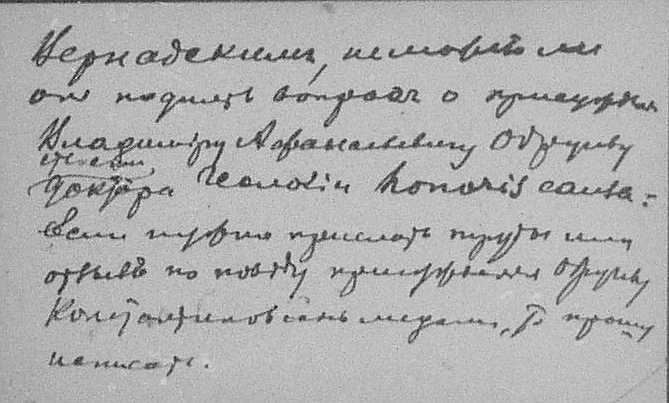 Вернадскимъ, не можетъ ли
онъ поднять вопросъ о присужденіи
Владиміру Афанасьевичу Обручеву
степени
доктора геологіи honoris causa.
Если нужно прислать труды или
отзывъ по поводу присужденія Обручеву
Константиновской медали, то прошу
написать.